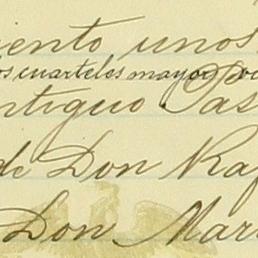 iento unos
os cuarteles mayor
ntiguo Pas
de Don Raf
Don Mar